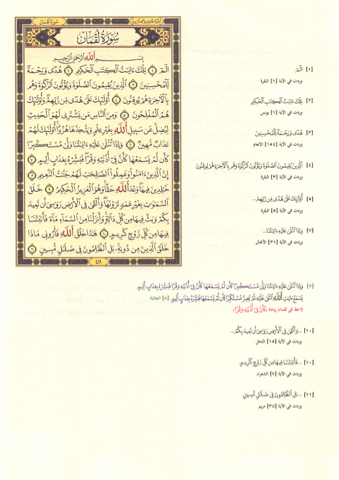 سُورَةُ لُقْمَان
بِسْمِ اللَّهِ الرَّحْمَٰنِ الرَّحِيمِ
الٓمٓ ۝ تِلْكَ ءَايَٰتُ ٱلْكِتَٰبِ ٱلْحَكِيمِ ۝ هُدًى وَرَحْمَةً
لِّلْمُحْسِنِينَ ۝ ٱلَّذِينَ يُقِيمُونَ ٱلصَّلَوٰةَ وَيُؤْتُونَ ٱلزَّكَوٰةَ وَهُم
بِٱلْأٓخِرَةِ هُمْ يُوقِنُونَ ۝ أُو۟لَٰٓئِكَ عَلَىٰ هُدًى مِّن رَّبِّهِمْ وَأُو۟لَٰٓئِكَ
هُمُ ٱلْمُفْلِحُونَ ۝ وَمِنَ ٱلنَّاسِ مَن يَشْتَرِى لَهْوَ ٱلْحَدِيثِ
لِيُضِلَّ عَن سَبِيلِ ٱللَّهِ بِغَيْرِ عِلْمٍ وَيَتَّخِذَهَا هُزُوًا أُو۟لَٰٓئِكَ لَهُمْ
عَذَابٌ مُّهِينٌ ۝ وَإِذَا تُتْلَىٰ عَلَيْهِ ءَايَٰتُنَا وَلَّىٰ مُسْتَكْبِرًا
كَأَن لَّمْ يَسْمَعْهَا كَأَنَّ فِىٓ أُذُنَيْهِ وَقْرًا فَبَشِّرْهُ بِعَذَابٍ أَلِيمٍ ۝
إِنَّ ٱلَّذِينَ ءَامَنُوا۟ وَعَمِلُوا۟ ٱلصَّٰلِحَٰتِ لَهُمْ جَنَّٰتُ ٱلنَّعِيمِ ۝
خَٰلِدِينَ فِيهَا وَعْدَ ٱللَّهِ حَقًّا وَهُوَ ٱلْعَزِيزُ ٱلْحَكِيمُ ۝ خَلَقَ
ٱلسَّمَٰوَٰتِ بِغَيْرِ عَمَدٍ تَرَوْنَهَا وَأَلْقَىٰ فِى ٱلْأَرْضِ رَوَٰسِىَ أَن تَمِيدَ
بِكُمْ وَبَثَّ فِيهَا مِن كُلِّ دَآبَّةٍ وَأَنزَلْنَا مِنَ ٱلسَّمَآءِ مَآءً فَأَنۢبَتْنَا
فِيهَا مِن كُلِّ زَوْجٍ كَرِيمٍ ۝ هَٰذَا خَلْقُ ٱللَّهِ فَأَرُونِى مَاذَا
خَلَقَ ٱلَّذِينَ مِن دُونِهِۦ بَلِ ٱلظَّٰلِمُونَ فِى ضَلَٰلٍ مُّبِينٍ ۝
٤١١
[١] الٓمٓ
وردت في الآية [١] البقرة
[٢] تِلْكَ ءَايَٰتُ ٱلْكِتَٰبِ ٱلْحَكِيمِ
وردت في الآية [١] يونس
[٣] هُدًى وَرَحْمَةً لِّلْمُحْسِنِينَ
[٤] ٱلَّذِينَ يُقِيمُونَ ٱلصَّلَوٰةَ وَيُؤْتُونَ ٱلزَّكَوٰةَ وَهُم بِٱلْأٓخِرَةِ هُمْ يُوقِنُونَ
وردت في الآية [٣] البقرة
[٥] أُو۟لَٰٓئِكَ عَلَىٰ هُدًى مِّن رَّبِّهِمْ...
وردت في الآية [٥] البقرة
[٧] وَإِذَا تُتْلَىٰ عَلَيْهِ ءَايَٰتُنَا...
وردت في الآية [٣١] الأنفال
[٧] وَإِذَا تُتْلَىٰ عَلَيْهِ ءَايَٰتُنَا وَلَّىٰ مُسْتَكْبِرًا كَأَن لَّمْ يَسْمَعْهَا كَأَنَّ فِىٓ أُذُنَيْهِ وَقْرًا فَبَشِّرْهُ بِعَذَابٍ أَلِيمٍ
يَسْمَعُ ءَايَٰتِ ٱللَّهِ تُتْلَىٰ عَلَيْهِ ثُمَّ يُصِرُّ مُسْتَكْبِرًا كَأَن لَّمْ يَسْمَعْهَا فَبَشِّرْهُ بِعَذَابٍ أَلِيمٍ [٨] الجاثية
كَأَنَّ فِىٓ أُذُنَيْهِ وَقْرًا
[١٠] ...وَأَلْقَىٰ فِى ٱلْأَرْضِ رَوَٰسِىَ أَن تَمِيدَ بِكُمْ...
وردت في الآية [١٥] النحل
[١٠] ...فَأَنۢبَتْنَا فِيهَا مِن كُلِّ زَوْجٍ كَرِيمٍ
وردت في الآية [٧] الشعراء
[١١] ...بَلِ ٱلظَّٰلِمُونَ فِى ضَلَٰلٍ مُّبِينٍ
وردت في الآية [٣٨] مريم